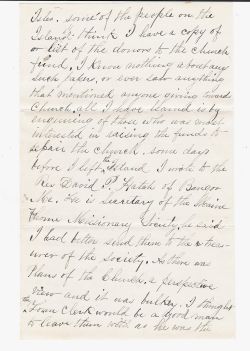 Isles, some of the people on the
Island think I have a copy of
or list of the donors to the church
fund, I know nothing about any
such takers, or ever saw anything
that mentioned anyone giving towards
Church, all I have learned is by
enquiring of those who was most
interested in raising the funds to
repair the church, some days
before I left the Island I wrote to the
Rev David P. Hatch of Bangor
Me. He is Secretary of the Maine
Home Missionary Society, he said
I had better send them to the treas-
urer of the Society. As there was
Plans of the Church, a perspective
view and it was bulky. I thought
the Town Clerk would be a good man
to leave them with as he was the